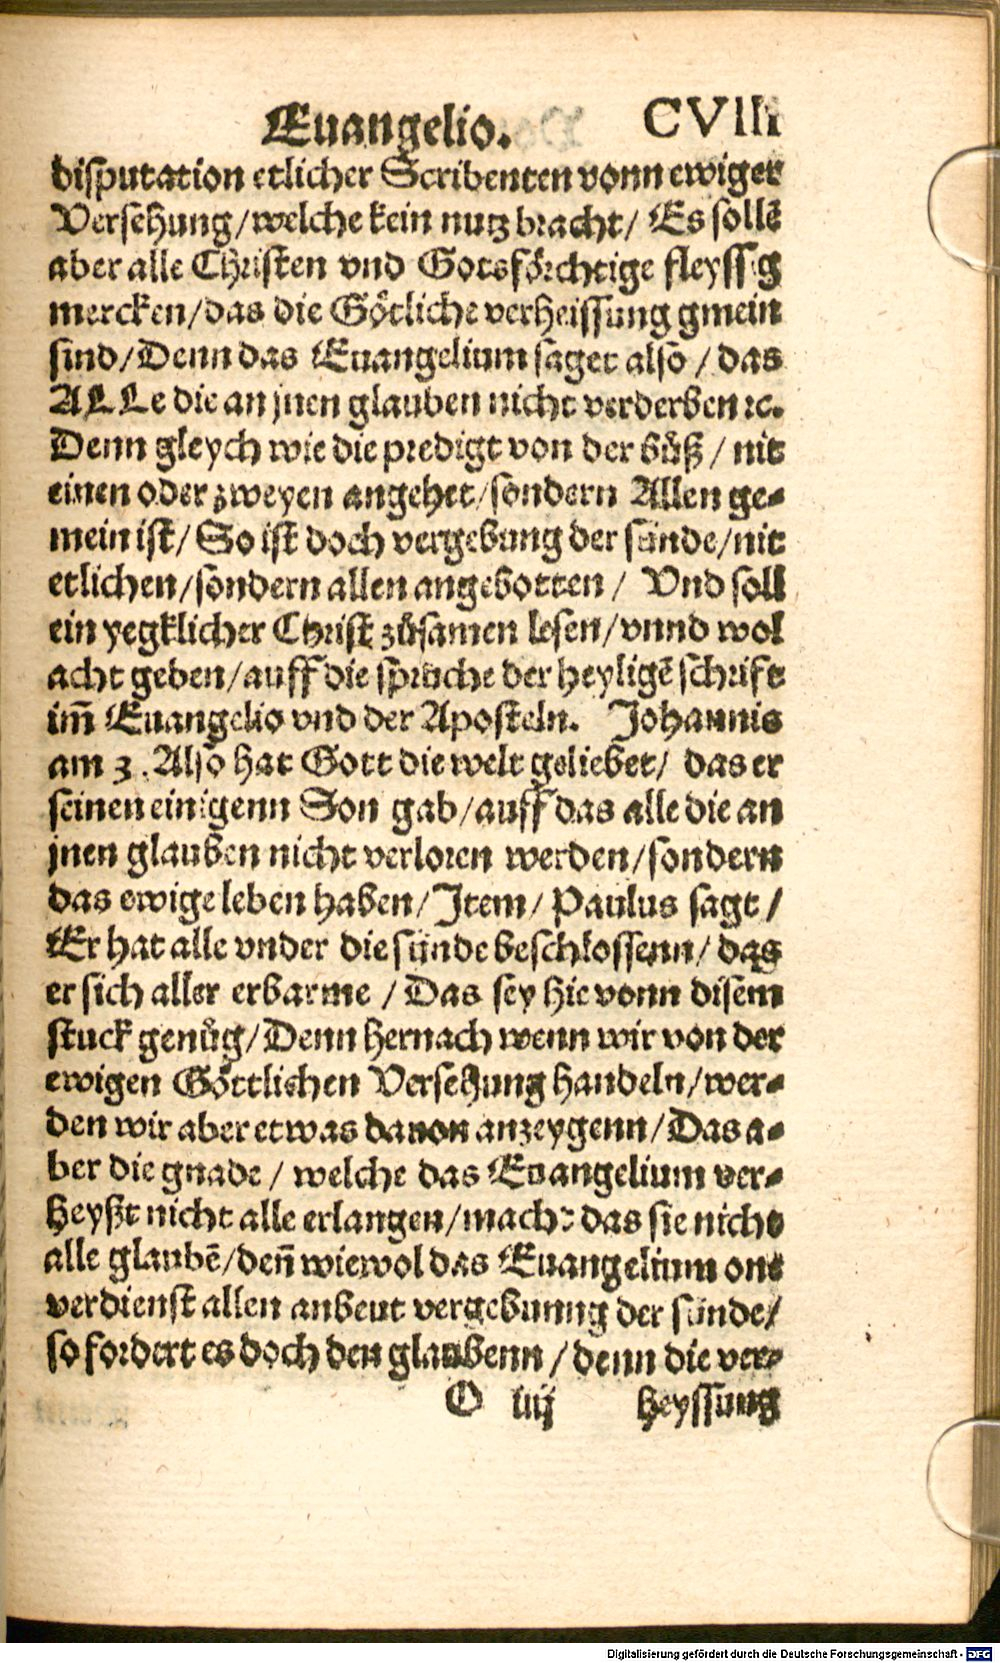 Euangelio. CVIII
disputation etlicher Scribenten vonn ewiger
Versehung/welche kein nutz bracht/ Es sollē
aber alle Christen vnd Gotsförchtige fleyssig
mercken/das die Götliche verheissung gmein
sind/Denn das Euangelium saget also/das
ALLe die an jnen glauben nicht verderben ꝛc.
Denn gleych wie die predigt von der bůß/nit
einen oder zweyen angehet/sondern Allen ge-
mein ist/So ist doch vergebung der sünde/nit
etlichen/sondern allen angebotten/ Vnd soll
ein yegklicher Christ zůsamen lesen/vnnd wol
acht geben/auff die sprüche der heyligē schrift
im̄ Euangelio vnd der Aposteln. Johannis
am 3. Also hat Gott die welt geliebet/ das er
seinen einigenn Son gab/auff das alle die an
jnen glauben nicht verloren werden/sondern
das ewige leben haben/Item/Paulus sagt/
Er hat alle vnder die sünde beschlossenn/das
er sich aller erbarme/Das sey hie vonn disem
stuck genůg/Denn hernach wenn wir von der
ewigen Göttlichen Versehung handeln/wer-
den wir aber etwas dauon anzeygenn/Das a-
ber die gnade/welche das Euangelium ver-
heyßt nicht alle erlangen/macht das sie nicht
alle glaubē/deñ wiewol das Euangelium one
verdienst allen anbeut vergebunng der sünde/
so fordert es doch den glaubenn/denn die ver-
O iiij heyssung
Digitalisierung gefördert durch die Deutsche Forschungsgemeinschaft - DFG